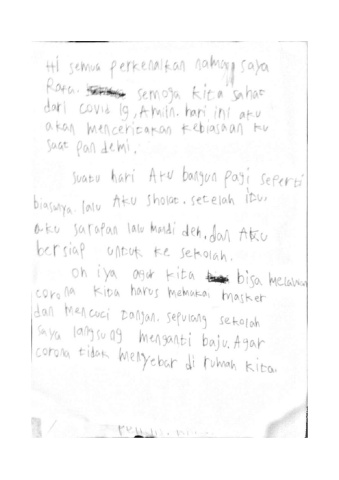 Hi semua perkenalkan nama saya
Rafa. semoga kita sahat
dari covid 19, Amin. hari ini aku
akan menceritakan kebiasaan ku
saat pandemi.
suatu hari Aku bangun pagi seperti
biasanya. lalu Aku sholat. setelah itu,
aku sarapan lalu mandi deh, dan Aku
bersiap untuk ke sekolah.
oh iya agar kita bisa melawan
corona kita harus memakai masker
dan mencuci tangan. sepulang sekolah
saya langsung menganti baju. Agar
corona tidak menyebar di rumah kita.